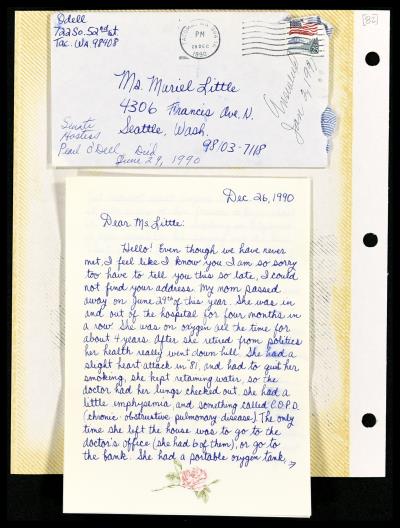 Odell
722 So. 52nd St.
Tac. WA. 98408
PM
28 DEC
1990
Ms. Muriel Little
4306 Francis Ave. N.
Seattle, Wash.
98103-7118
Senate
Hostess
Pearl O'Dell Died
June 29, 1990
Answered
[82]
Dec. 26, 1990
Dear Ms. Little:
Hello! Even though we have never
met, I feel like I know you I am so sorry
too have to tell you this so late, I could
not find your address. My mom passed
away on June 29th of this year. She was in
and out of the hospital for four months in
a row She was on oxygen all the time for
about 4 years. After she retired from politics
her health really went down hill. She had a
slight heart attack in '81, and had to quit her
smoking, she kept retaining water, so the
doctor had her lungs checked out. she had a
little emphysemia, and something called C.O.P.D.
(chronic obstructive pulmonary disease). The only
time she left the house was to go to the
doctor's office (she had 6 of them), or go to
the bank. She had a portable oxygen tank, →